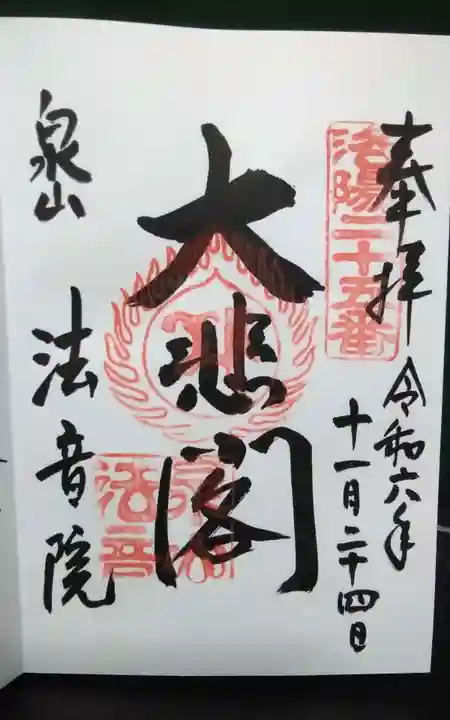 奉拝
令和六年
十一月二十四日
洛陽二十五番
大悲閣
泉山
法音院